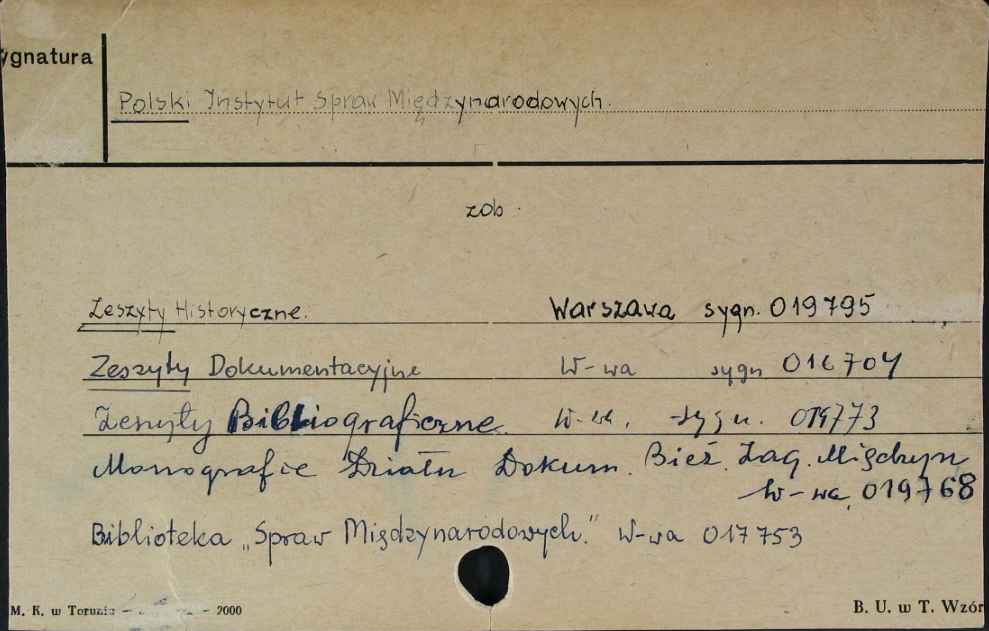 ygnatura
Polski Instytut Spraw Międzynarodowych.
zob.
Zeszyty Historyczne. Warszawa sygn. 019795
Zeszyty Dokumentacyjne W-wa sygn 016704
Zeszyty Bibliograficzne. W-wa. sygn. 019773
Monografie Działu Dokum. Bież. Zag. Międzyn
W-wa 019768
Biblioteka „Spraw Międzynarodowych." W-wa 017753
M. K. w Toruniu – – 2000 B. U. w T. Wzór